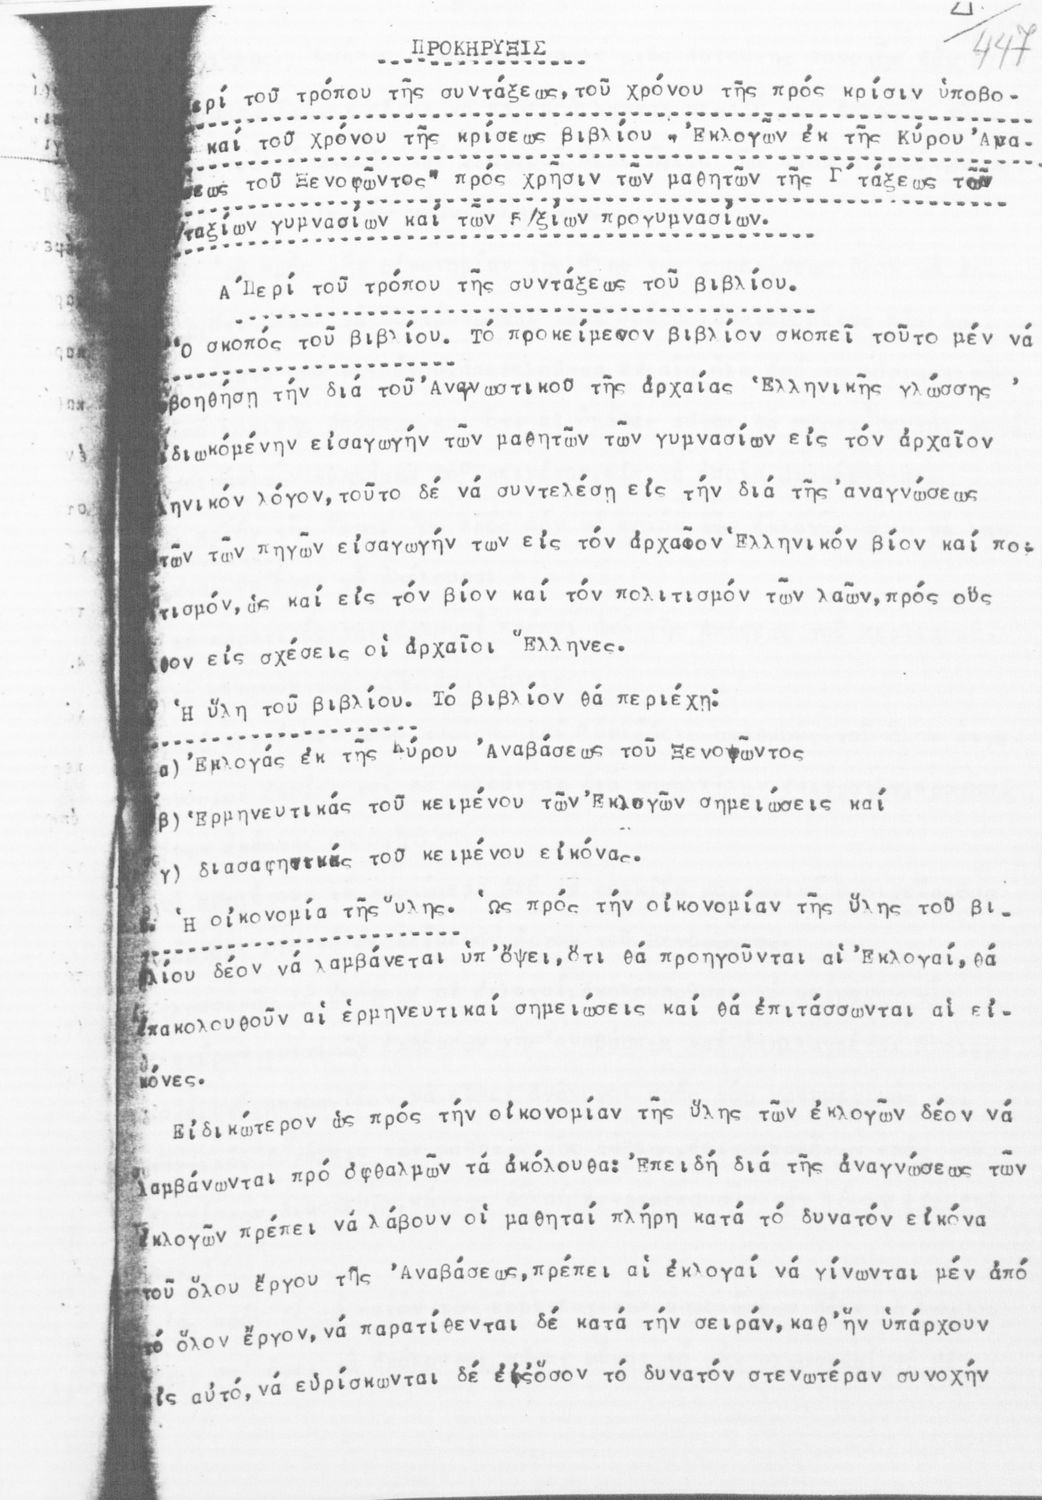 Δ/447
ΠΡΟΚΗΡΥΞΙΣ
ερί τοῦ τρόπου τῆς συντάξεως,τοῦ χρόνου τῆς πρός κρίσιν ὑποβο-
καί τοῦ χρόνου τῆς κρίσεως βιβλίου "Ἐκλογῶν ἐκ τῆς Κύρου Ἀνα-
εως τοῦ Ξενοφῶντος" πρός χρῆσιν τῶν μαθητῶν τῆς Γ΄τάξεως τῶν
/ταξίων γυμνασίων καί τῶν 5/ξίων προγυμνασίων.
Α΄Περί τοῦ τρόπου τῆς συντάξεως τοῦ βιβλίου.
Ὁ σκοπός τοῦ βιβλίου. Τό προκείμενον βιβλίον σκοπεῖ τοῦτο μέν νά
βοηθήσῃ τήν διά τοῦ Ἀναγνωστικοῦ τῆς ἀρχαίας Ἑλληνικῆς γλώσσης
διωκόμένην εἰσαγωγήν τῶν μαθητῶν τῶν γυμνασίων εἰς τόν ἀρχαῖον
ληνικόν λόγον,τοῦτο δέ νά συντελέσῃ εἰς τήν διά τῆς ἀναγνώσεως
τῶν τῶν πηγῶν εἰσαγωγήν των εἰς τόν ἀρχαῖον Ἑλληνικόν βίον καί πο-
τισμόν,ὡς καί εἰς τόν βίον καί τόν πολιτισμόν τῶν λαῶν,πρός οὕς
θον εἰς σχέσεις οἱ ἀρχαῖοι Ἕλληνες.
Ἡ ὕλη τοῦ βιβλίου. Τό βιβλίον θά περιέχῃ:
α) Ἐκλογάς ἐκ τῆς Κύρου Ἀναβάσεως τοῦ Ξενοφῶντος
β) Ἑρμηνευτικάς τοῦ κειμένου τῶν Ἐκλογῶν σημειώσεις καί
γ) διασαφητικάς τοῦ κειμένου εἰκόνας.
Ἡ οἰκονομία τῆς ὕλης. Ὡς πρός τήν οἰκονομίαν τῆς ὕλης τοῦ βι-
βλίου δέον νά λαμβάνεται ὑπ᾽ὄψει,ὅτι θά προηγοῦνται αἱ Ἐκλογαί,θά
ἐπακολουθοῦν αἱ ἑρμηνευτικαί σημειώσεις καί θά ἐπιτάσσωνται αἱ εἰ-
κόνες.
Εἰδικώτερον ὡς πρός τήν οἰκονομίαν τῆς ὕλης τῶν ἐκλογῶν δέον νά
λαμβάνωνται πρό ὀφθαλμῶν τά ἀκόλουθα: Ἐπειδή διά τῆς ἀναγνώσεως τῶν
ἐκλογῶν πρέπει νά λάβουν οἱ μαθηταί πλήρη κατά τό δυνατόν εἰκόνα
τοῦ ὅλου ἔργου τῆς Ἀναβάσεως,πρέπει αἱ ἐκλογαί νά γίνωνται μέν ἀπό
τό ὅλον ἔργον,νά παρατίθενται δέ κατά τήν σειράν,καθ᾽ἥν ὑπάρχουν
εἰς αὐτό,νά εὑρίσκωνται δέ ἐφ᾽ὅσον τό δυνατόν στενωτέραν συνοχήν